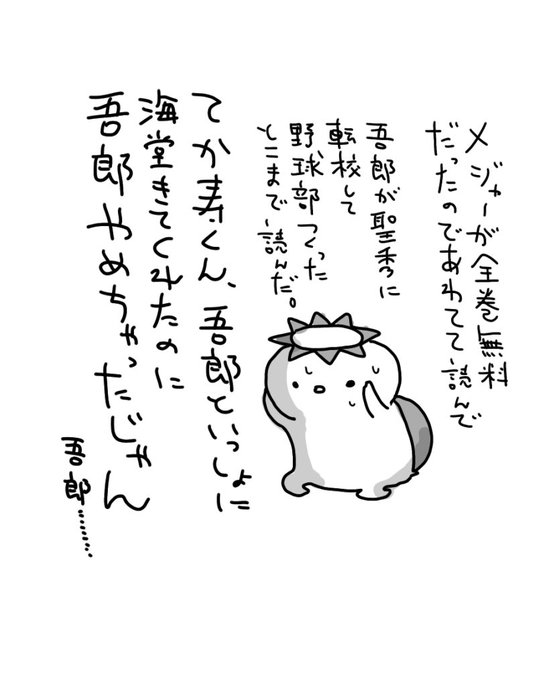 メジャーが全巻無料
だったのであわてて読んで
吾郎が聖秀に
転校して
野球部つくった
とこまで読んだ。
てか寿くん、吾郎といっしょに
海堂きてくれたのに
吾郎やめちゃったじゃん
吾郎………